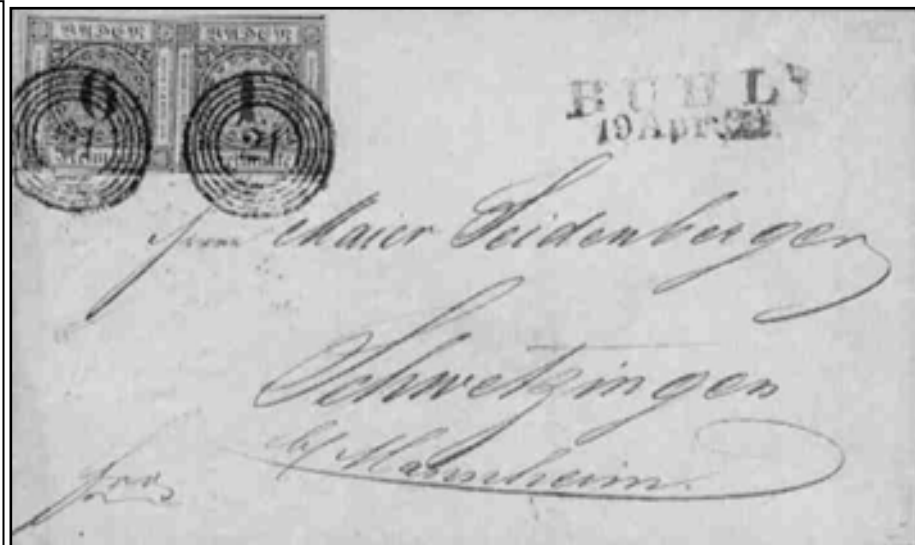 BADEN BADEN
6 1
Kreuzer
BUHL
19 Apr.
Herrn Maier Seidenberger
Schwetzingen
b/ Mannheim.
frco